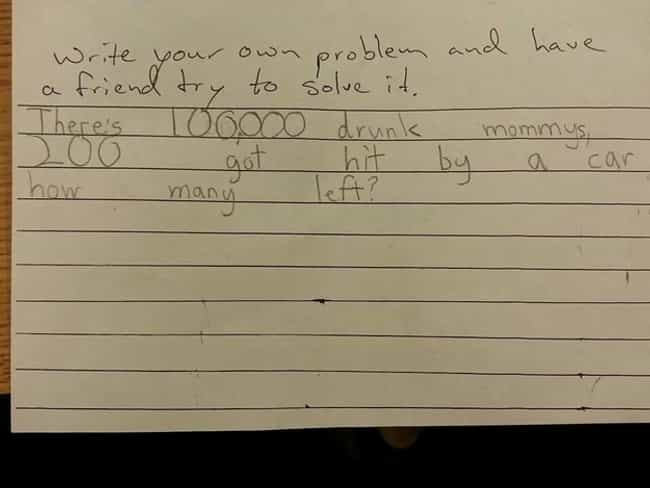 Write your own problem and have
a friend try to solve it.
There's 100,000 drunk mommys,
200 got hit by a car
how many left?